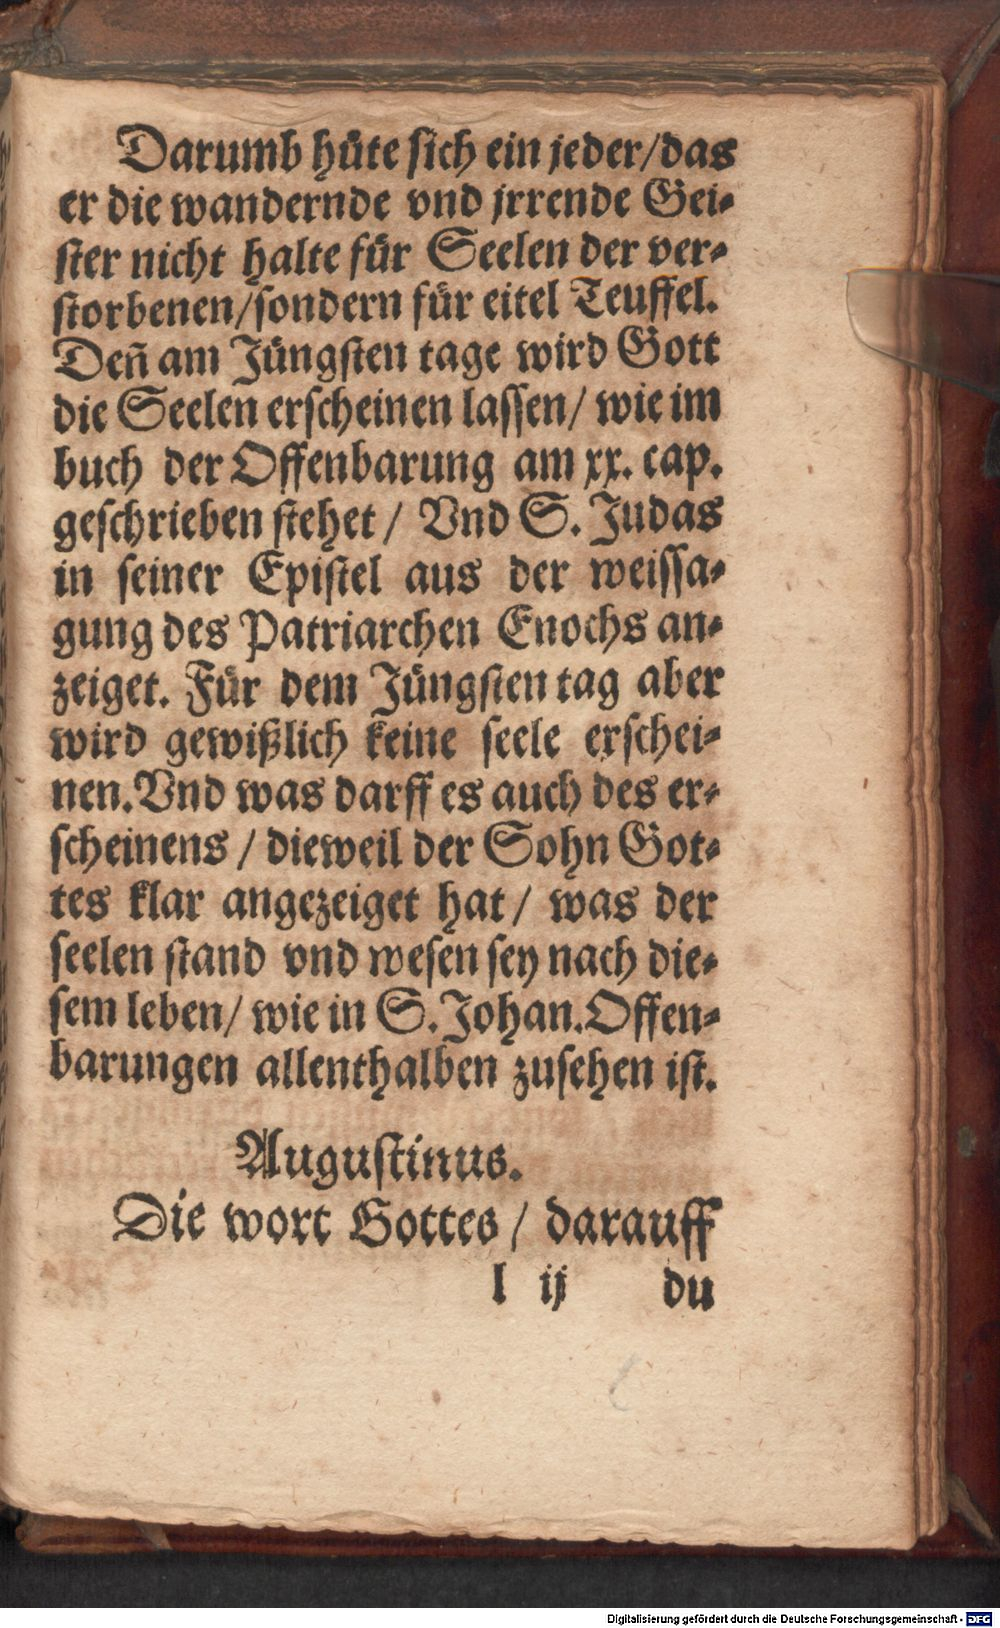 Darumb hüte sich ein jeder/das
er die wandernde vnd jrrende Gei-
ster nicht halte für Seelen der ver-
storbenen/sondern für eitel Teuffel.
Deñ am Jüngsten tage wird Gott
die Seelen erscheinen lassen/ wie im
buch der Offenbarung am xx. cap.
geschrieben stehet / Vnd S. Judas
in seiner Epistel aus der weissa-
gung des Patriarchen Enochs an-
zeiget. Für dem Jüngsten tag aber
wird gewißlich keine seele erschei-
nen. Vnd was darff es auch des er-
scheinens / dieweil der Sohn Got-
tes klar angezeiget hat / was der
seelen stand vnd wesen sey nach die-
sem leben/ wie in S. Johan. Offen-
barungen allenthalben zusehen ist.
Augustinus.
Die wort Gottes / darauff
l ij du
Digitalisierung gefördert durch die Deutsche Forschungsgemeinschaft - DFG